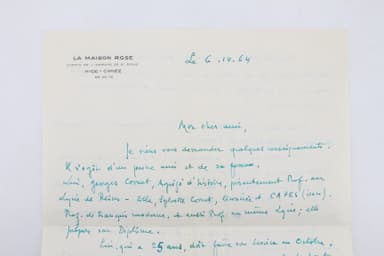 LA MAISON ROSE
NICE-CIMIEZ
Le 6.IV.64
Mon cher ami,
Je viens vous demander quelques renseignements.
Il s'agit d'un jeune ami et de sa femme.
Lui, Georges Cornut, Agrégé d'histoire, présentement Prof. au
Lycée de Reims - Elle, Licenciée et CAPES
Prof. de français moderne, est aussi Prof. au même Lycée ; elle
prépare son Diplôme.
Lui, qui a 25 ans, doit faire son service en Octobre,